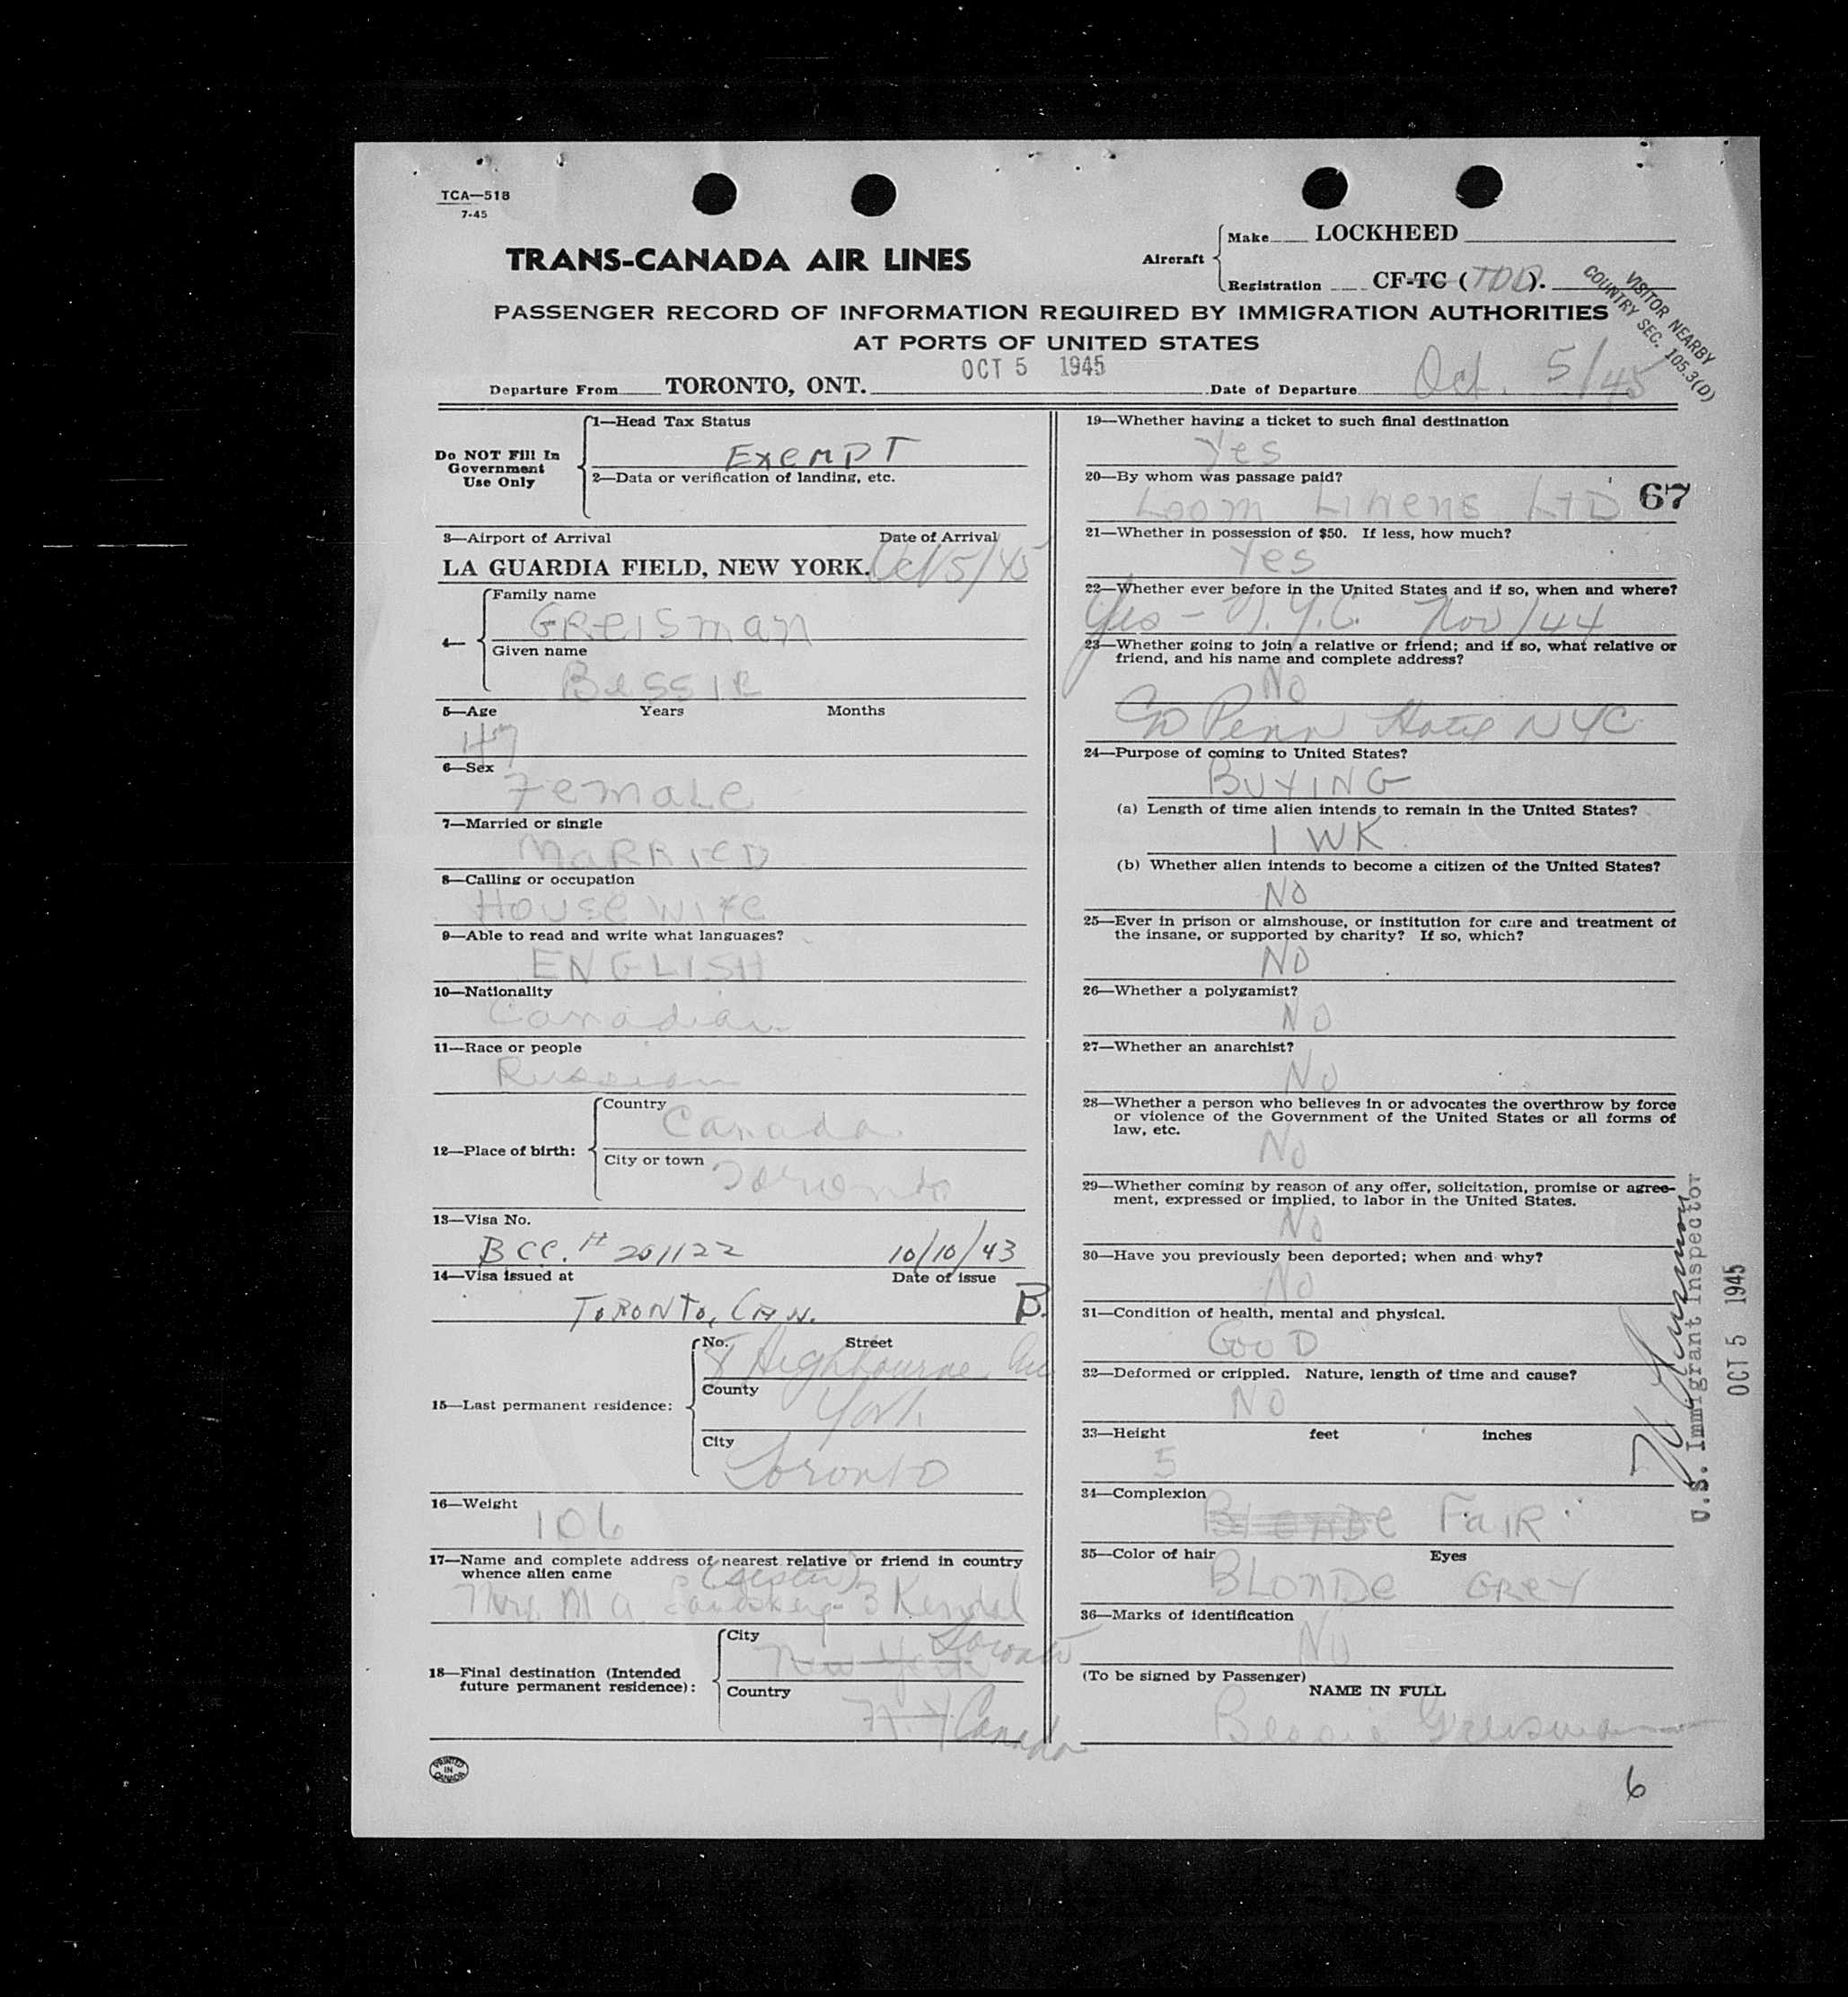 TCA—518
7-45
TRANS-CANADA AIR LINES
Aircraft
Make LOCKHEED
Registration CF-TC (TDD).
VISITOR NEARBY
COUNTRY SEC. 105.3(D)
PASSENGER RECORD OF INFORMATION REQUIRED BY IMMIGRATION AUTHORITIES
AT PORTS OF UNITED STATES
OCT 5 1945
Departure From TORONTO, ONT. Date of Departure Oct. 5/45
Do NOT Fill In
Government
Use Only
1—Head Tax Status
Exempt
2—Data or verification of landing, etc.
3—Airport of Arrival Date of Arrival
LA GUARDIA FIELD, NEW YORK. Oct 5/45
4—
Family name
GReISman
Given name
BeSSIe
5—Age Years Months
47
6—Sex
Female
7—Married or single
MaRRIeD
8—Calling or occupation
House wife
9—Able to read and write what languages?
ENGLISH
10—Nationality
Canadian
11—Race or people
Russian
12—Place of birth:
Country
Canada
City or town
Toronto
13—Visa No.
BCC. # 201122 10/10/43
14—Visa issued at Date of issue
TORONTO, CAN. B.
15—Last permanent residence:
No. Street
8 Highbourne Ave
County
York
City
Toronto
16—Weight
106
17—Name and complete address of nearest relative or friend in country
whence alien came
(sister)
Mrs. M A 3 Kendal
Toronto
18—Final destination (Intended
future permanent residence):
City
New York
Country
N.Y Canada
PRINTED
IN
CANADA
19—Whether having a ticket to such final destination
Yes
20—By whom was passage paid?
Loom Linens LTD 67
21—Whether in possession of $50. If less, how much?
Yes
22—Whether ever before in the United States and if so, when and where?
Yes - N.Y.C. Nov/44
23—Whether going to join a relative or friend; and if so, what relative or
friend, and his name and complete address?
No
Penn Hotel NYC
24—Purpose of coming to United States?
BUYING
(a) Length of time alien intends to remain in the United States?
1 WK.
(b) Whether alien intends to become a citizen of the United States?
NO
25—Ever in prison or almshouse, or institution for care and treatment of
the insane, or supported by charity? If so, which?
NO
26—Whether a polygamist?
NO
27—Whether an anarchist?
No
28—Whether a person who believes in or advocates the overthrow by force
or violence of the Government of the United States or all forms of
law, etc.
No
29—Whether coming by reason of any offer, solicitation, promise or agree-
ment, expressed or implied, to labor in the United States.
No
30—Have you previously been deported; when and why?
No
31—Condition of health, mental and physical.
GooD
32—Deformed or crippled. Nature, length of time and cause?
NO
33—Height feet inches
5
34—Complexion
BLONDe FaIR
35—Color of hair Eyes
BLONDe GReY
36—Marks of identification
No
(To be signed by Passenger)
NAME IN FULL
Bessie Greisman
6
U.S. Immigrant Inspector
OCT 5 1945